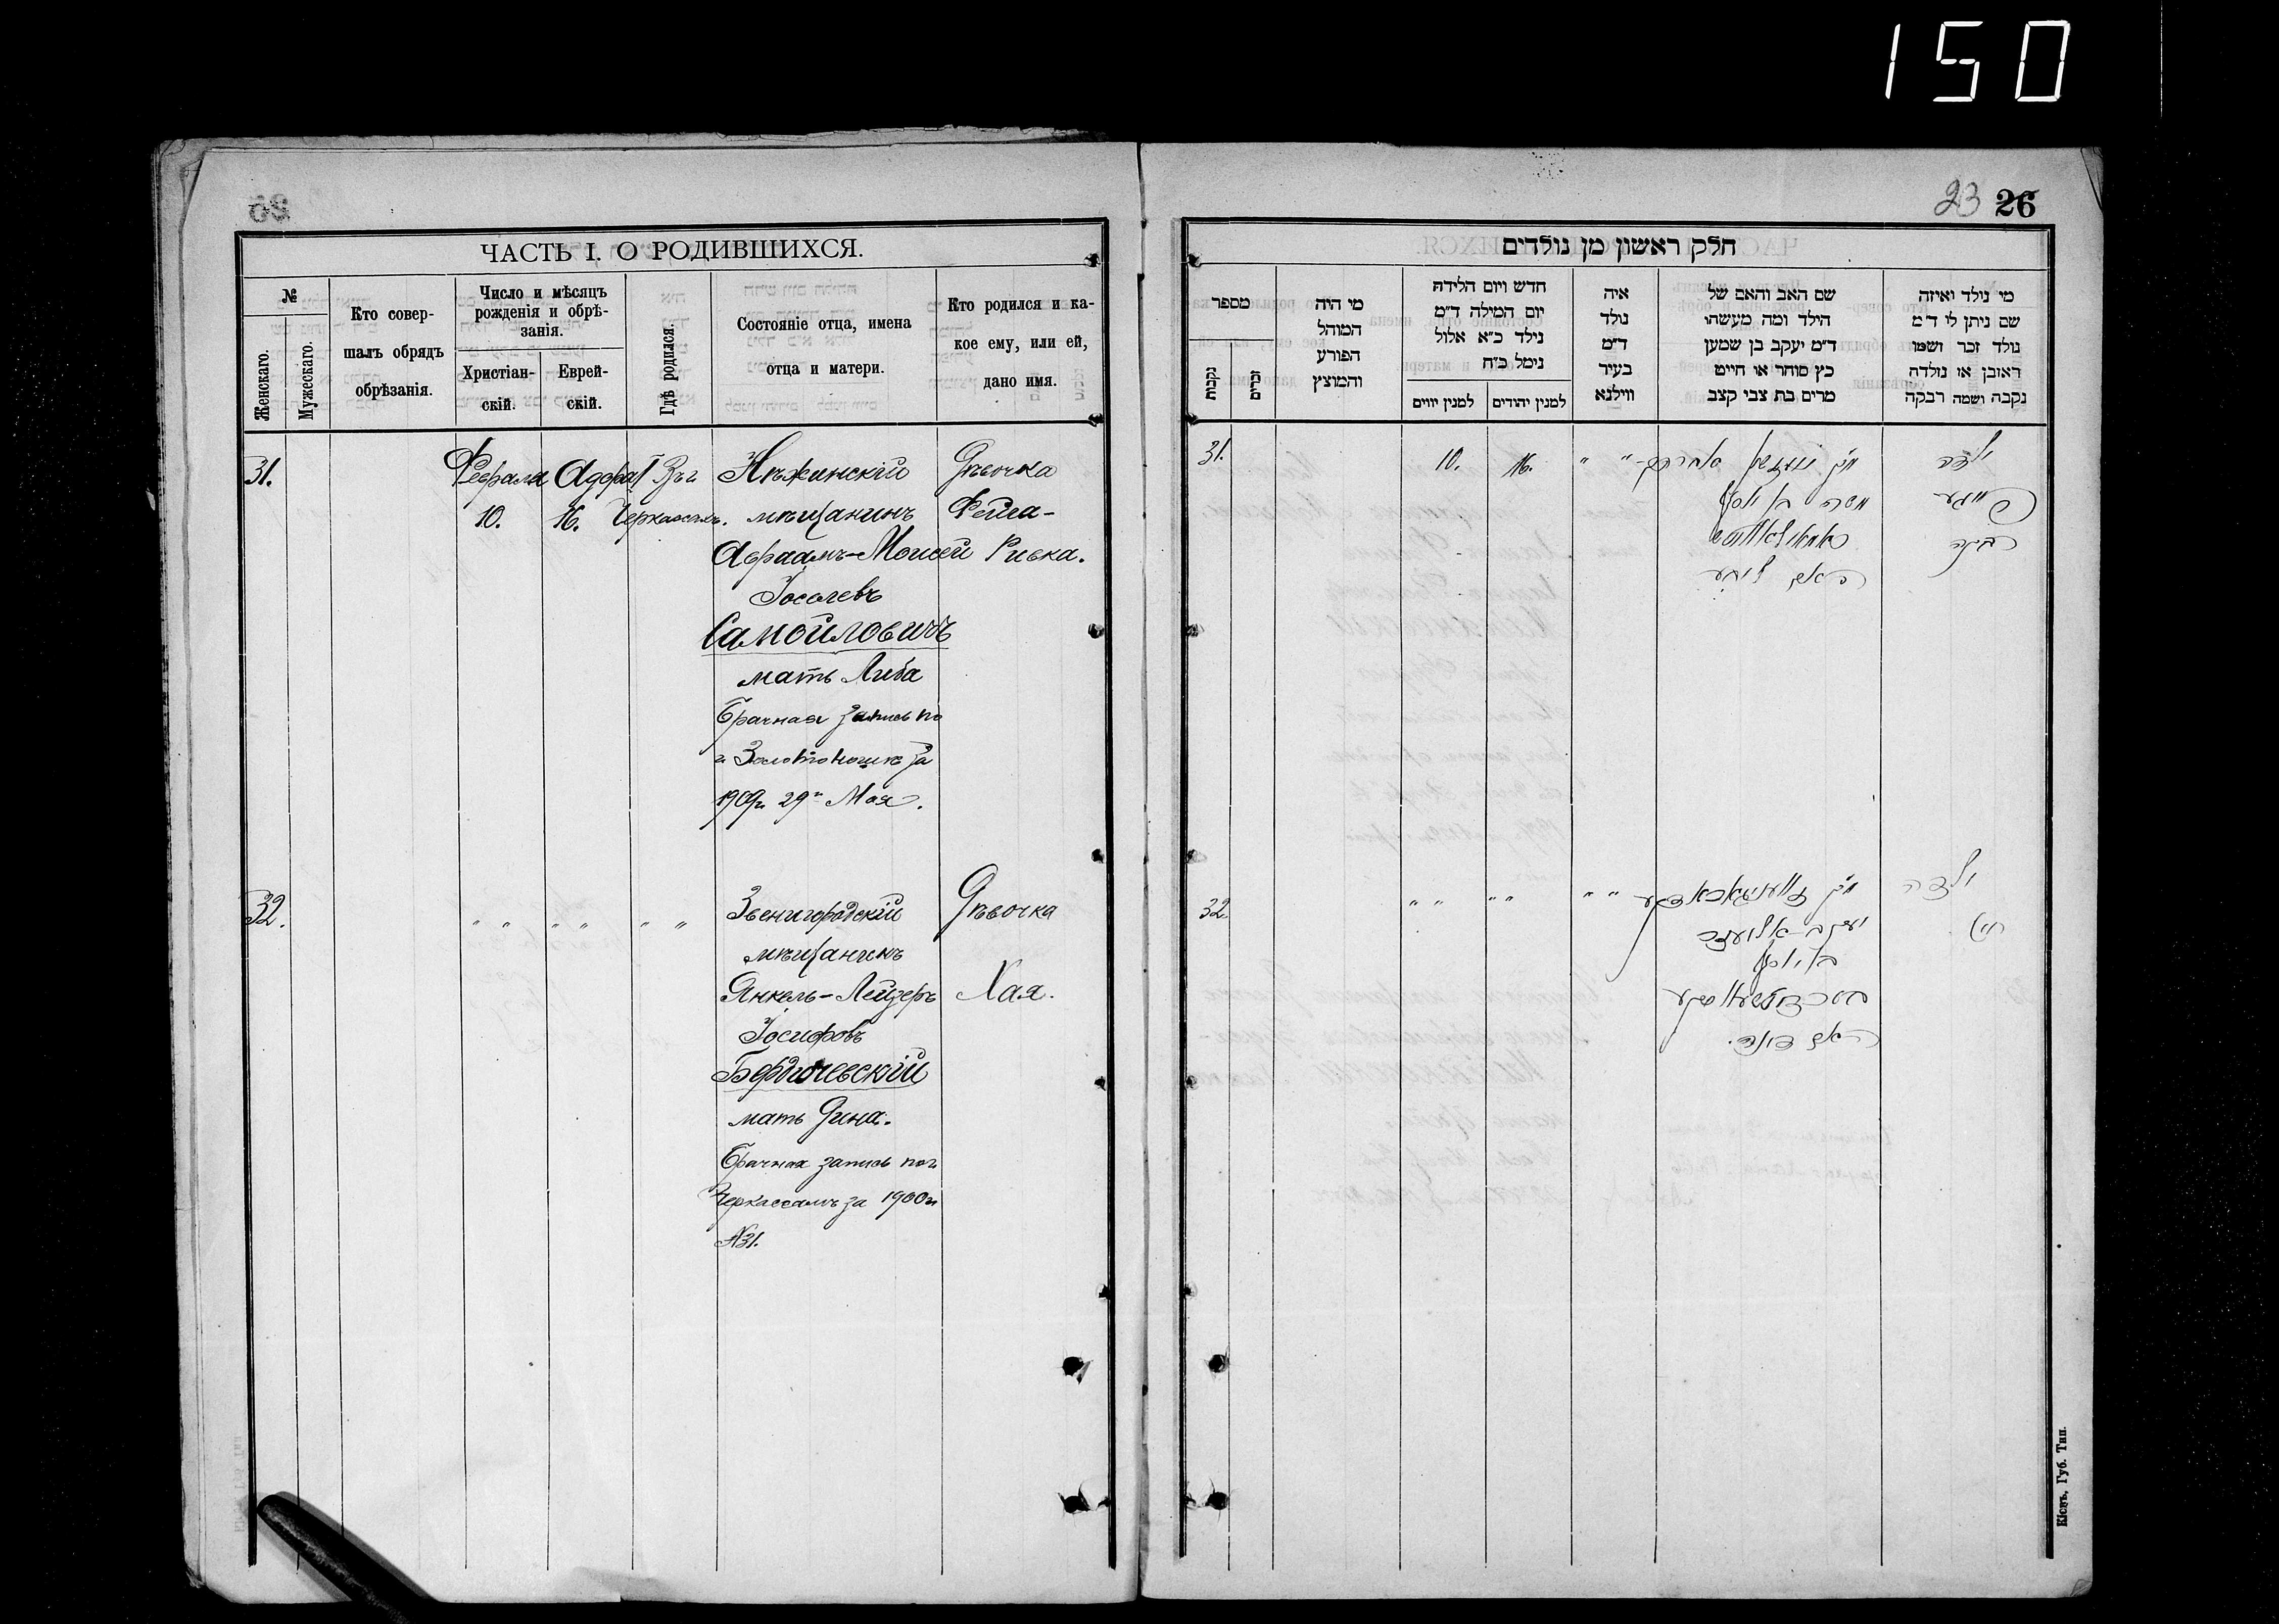 150
ЧАСТЬ I. О РОДИВШИХСЯ.
№
Женскаго.
Мужескаго.
Кто совер-
шалъ обрядъ
обрѣзанія.
Число и мѣсяцъ
рожденія и обрѣ-
занія.
Христіан-
скій.
Еврей-
скій.
Гдѣ родился.
Состояніе отца, имена
отца и матери.
Кто родился и ка-
кое ему, или ей,
дано имя.
31.
Февраля
10.
Адора I
16.
Въ г
Черкассахъ.
Нѣжинскій
мѣщанинъ
Авраамъ-Моисей
Іоселевъ
Самойловичъ
мать Либа
Брачная запись по
г. Золотоношѣ за
1909г. 29го Мая.
Дѣвочка
Фейга-
Ривка.
32.
" " " " " "
Звенигородскій
мѣщанинъ
Янкель-Лейзеръ
Іосифовъ
Бердичевскій
мать Дина.
Брачная запись по г.
Черкассамъ за 1900г.
№31.
Дѣвочка
Хая.
23 26
חלק ראשון מן נולדים
מספר
נקבות
זכרים
מי היה
המוהל
הפורע
והמוצץ
חדש ויום הלידה
יום המילה ד"מ
נילד כ"א אלול
נימל כ"ח
למנין יווים
למנין יהודים
איה
נולד
ד"מ
בעיר
ווילנא
שם האב והאם של
הילד ומה מעשהו
ד"מ יעקב בן שמען
כץ סוחר או חייט
מרים בת צבי קצב
מי נולד ואיזה
שם ניתן לי ד"מ
נולד זכר ושמו
ראובן או נולדה
נקבה ושמה רבקה
31.
10.
16.
" "
משה בן יוסף
ילדה
פייגע
רבקה
32.
" " " " " "
יעקב-אליעזר
ב' יוסף
ילדה
חי'
Кіевъ, Губ. Тип.